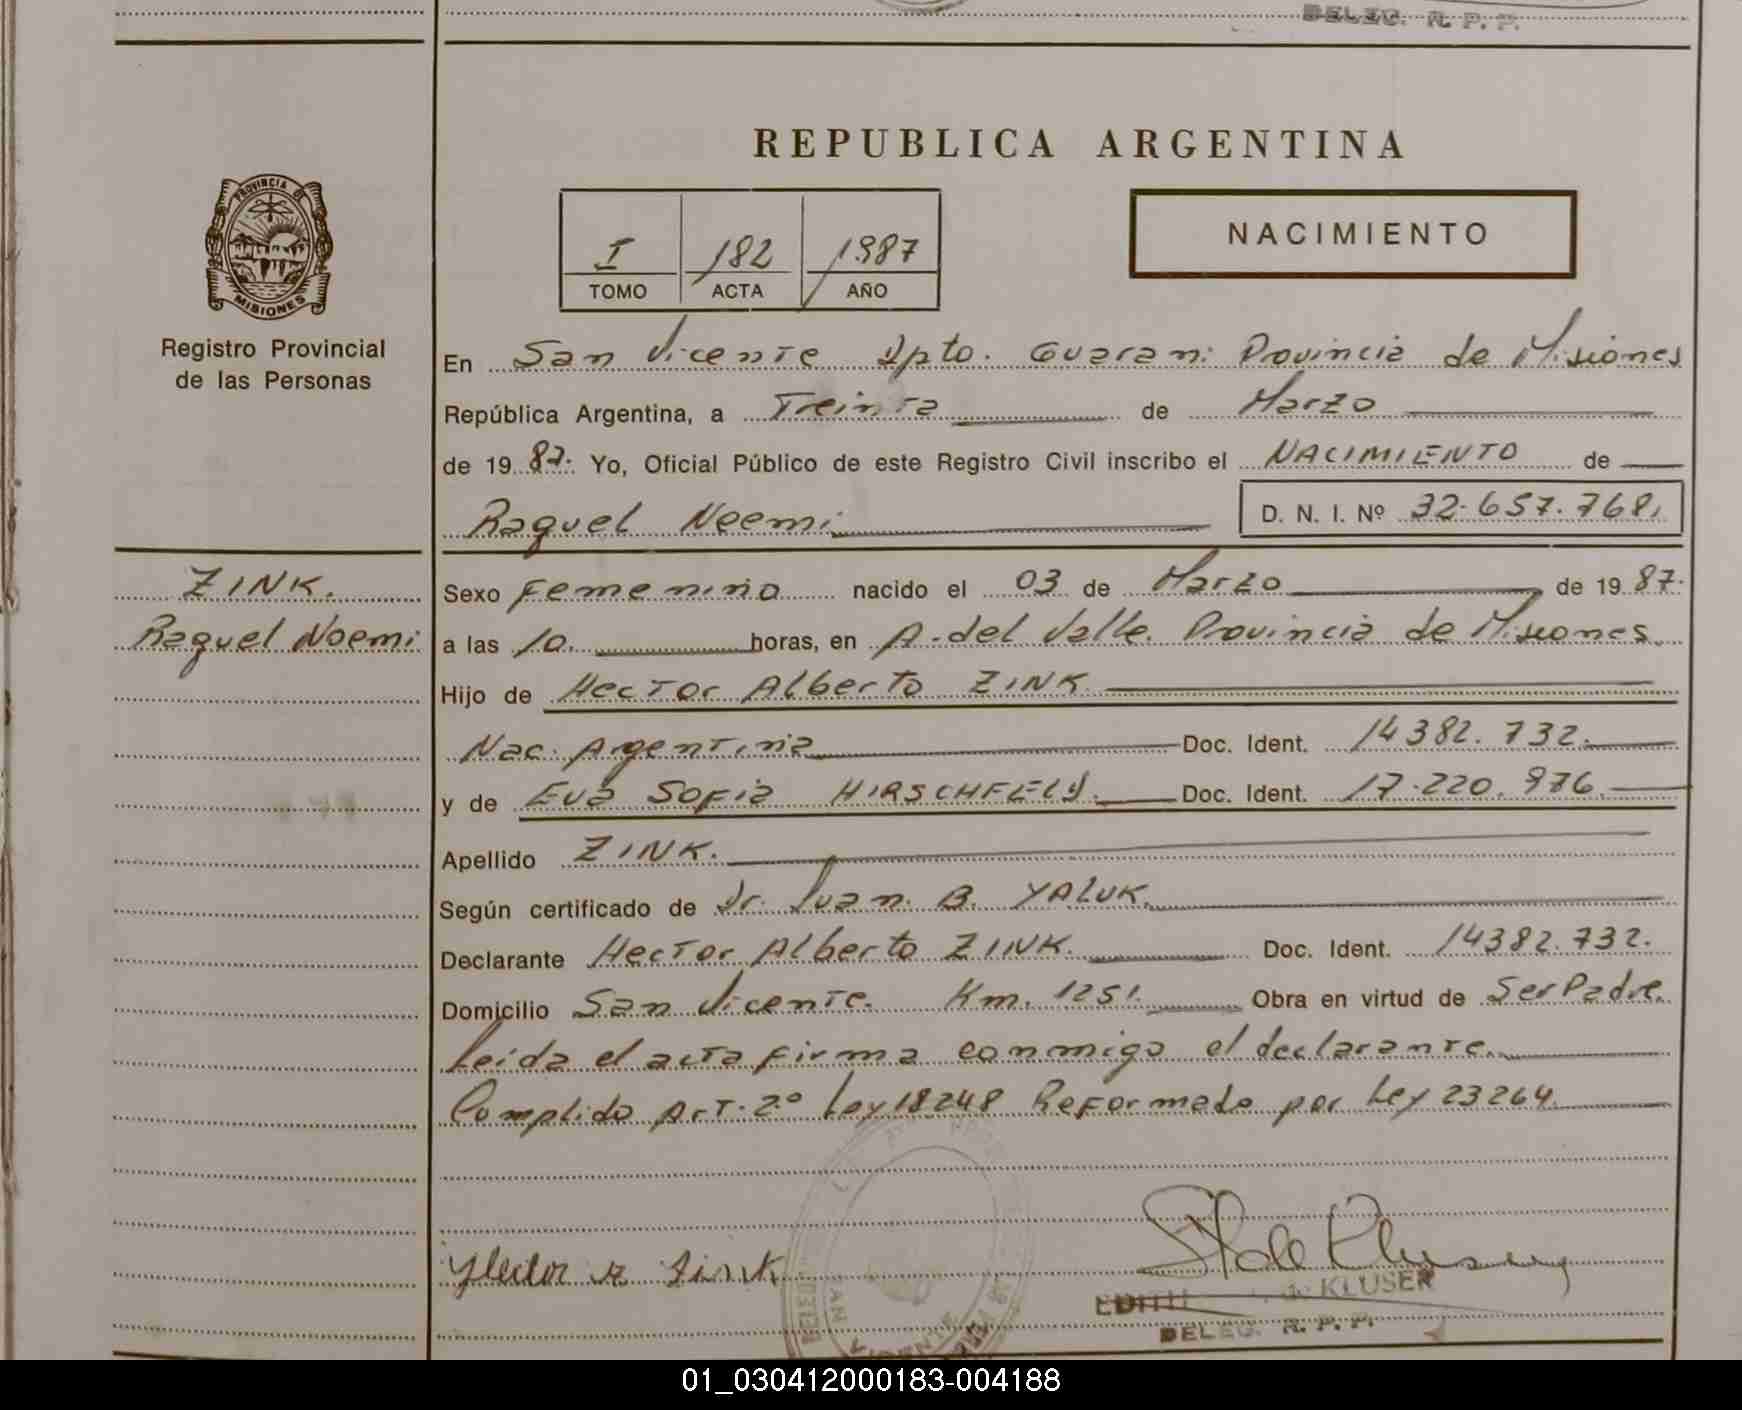 DELEG. R. P. P.
REPUBLICA ARGENTINA
PROVINCIA DE
MISIONES
I 182 1987
TOMO ACTA AÑO
NACIMIENTO
Registro Provincial
de las Personas
En San Vicente Dpto. Guarani Provincia de Misiones
República Argentina, a Treinta de Marzo
de 1987. Yo, Oficial Público de este Registro Civil inscribo el NACIMIENTO de
Raquel Noemi D. N. I. Nº 32.657.768.
ZINK.
Raquel Noemi
Sexo Femenino nacido el 03 de Marzo de 1987.
a las 10. horas, en A. del Valle. Provincia de Misiones.
Hijo de Hector Alberto ZINK
Nac. Argentina Doc. Ident. 14382.732.
y de Eva Sofia HIRSCHFELD. Doc. Ident. 17.220.976.
Apellido ZINK.
Según certificado de Dr. Juan B. YALUK.
Declarante Hector Alberto ZINK. Doc. Ident. 14382.732.
Domicilio San Vicente. Km. 1251. Obra en virtud de Ser Padre.
Leida el acta firma conmigo el declarante.
Complido Art. 2º Ley 18248 Reformado por Ley 23264.
Hector A Zink
EDITH de KLUSER
DELEG. R. P. P.
01_030412000183-004188